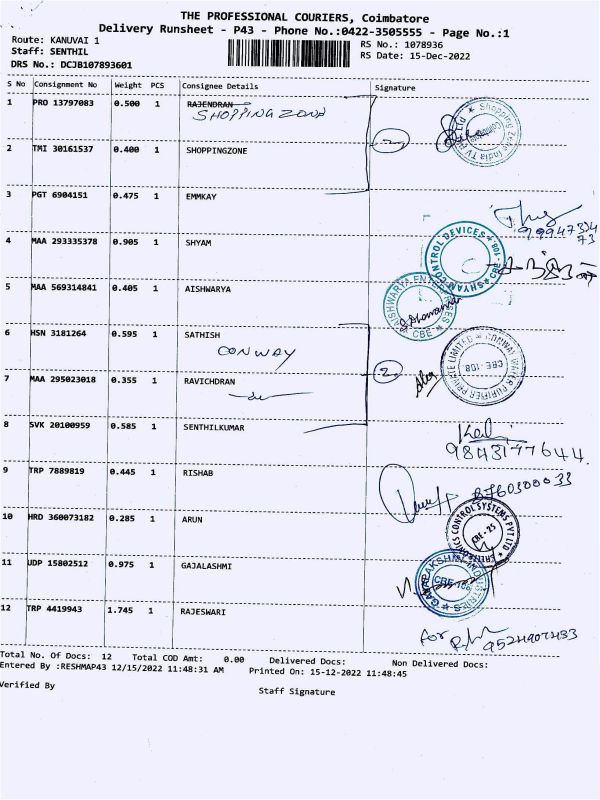 THE PROFESSIONAL COURIERS, Coimbatore
Delivery Runsheet - P43 - Phone No.:0422-3505555 - Page No.:1
Route: KANUVAI 1
Staff: SENTHIL
DRS No.: DCJB107893601
RS No.: 1078936
RS Date: 15-Dec-2022
S No Consignment No Weight PCS Consignee Details Signature
1 PRO 13797083 0.500 1 RAJENDRAN
SHOPPING ZONE
2 TMI 30161537 0.400 1 SHOPPINGZONE
3 PGT 6904151 0.475 1 EMMKAY
4 MAA 293335378 0.905 1 SHYAM
SHYAM CONTROL DEVICES
5 MAA 569314841 0.405 1 AISHWARYA
CBE
6 HSN 3181264 0.595 1 SATHISH
CONWAY
2
CONWAY WATER PURIFIER PRIVATE LIMITED
CBE-108
7 MAA 295023018 0.355 1 RAVICHDRAN
8 SVK 20100959 0.585 1 SENTHILKUMAR
9843177644
9 TRP 7889819 0.445 1 RISHAB
8760300033
10 HRD 360073182 0.285 1 ARUN
CONTROL SYSTEMS PVT LTD
CBE-25
11 UDP 15802512 0.975 1 GAJALASHMI
12 TRP 4419943 1.745 1 RAJESWARI
for
Total No. Of Docs: 12 Total COD Amt: 0.00 Delivered Docs: Non Delivered Docs:
Entered By :RESHMAP43 12/15/2022 11:48:31 AM Printed On: 15-12-2022 11:48:45
Verified By Staff Signature